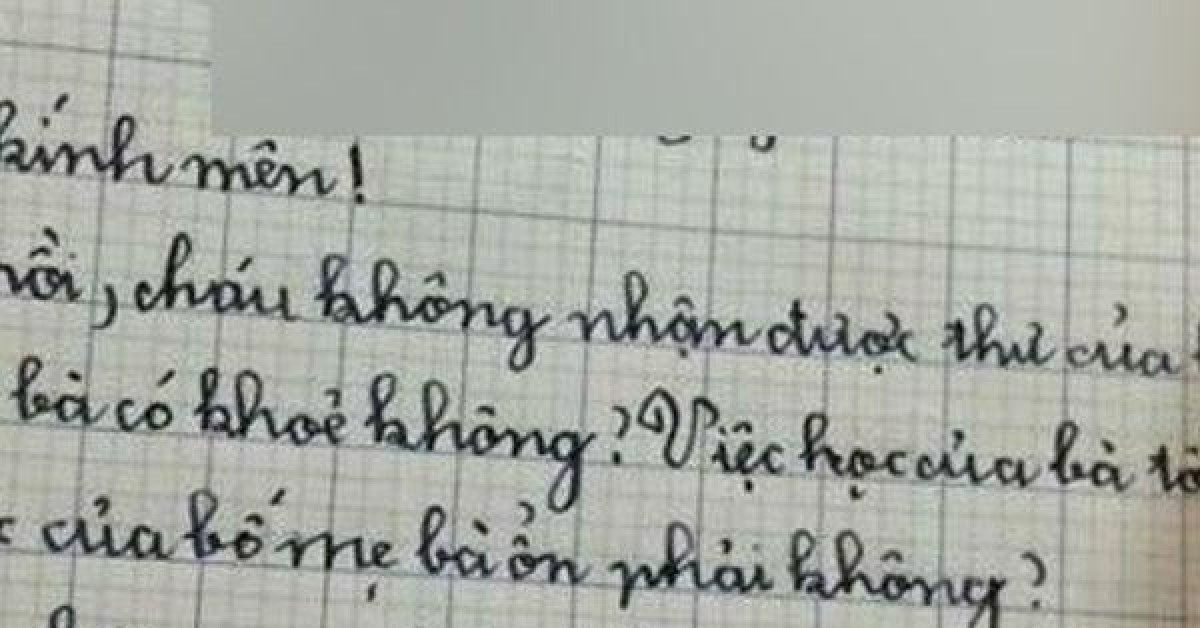 kính mên!
rồi, cháu không nhận được thư của
bà có khoẻ không? Việc học của bà
của bố mẹ bà ổn phải không?